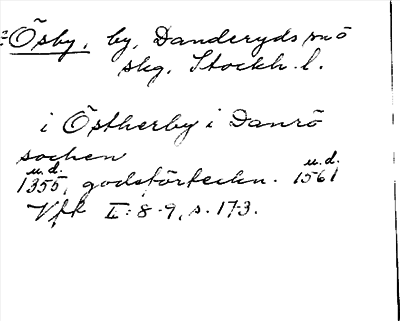 Ösby, by, Danderyds sn o
skg, Stockh. l.
i Östherby i Danrö
socken
u.d.
1355, godsförteckn. u.d. 1561
Vfr II: 8-9, s. 173.